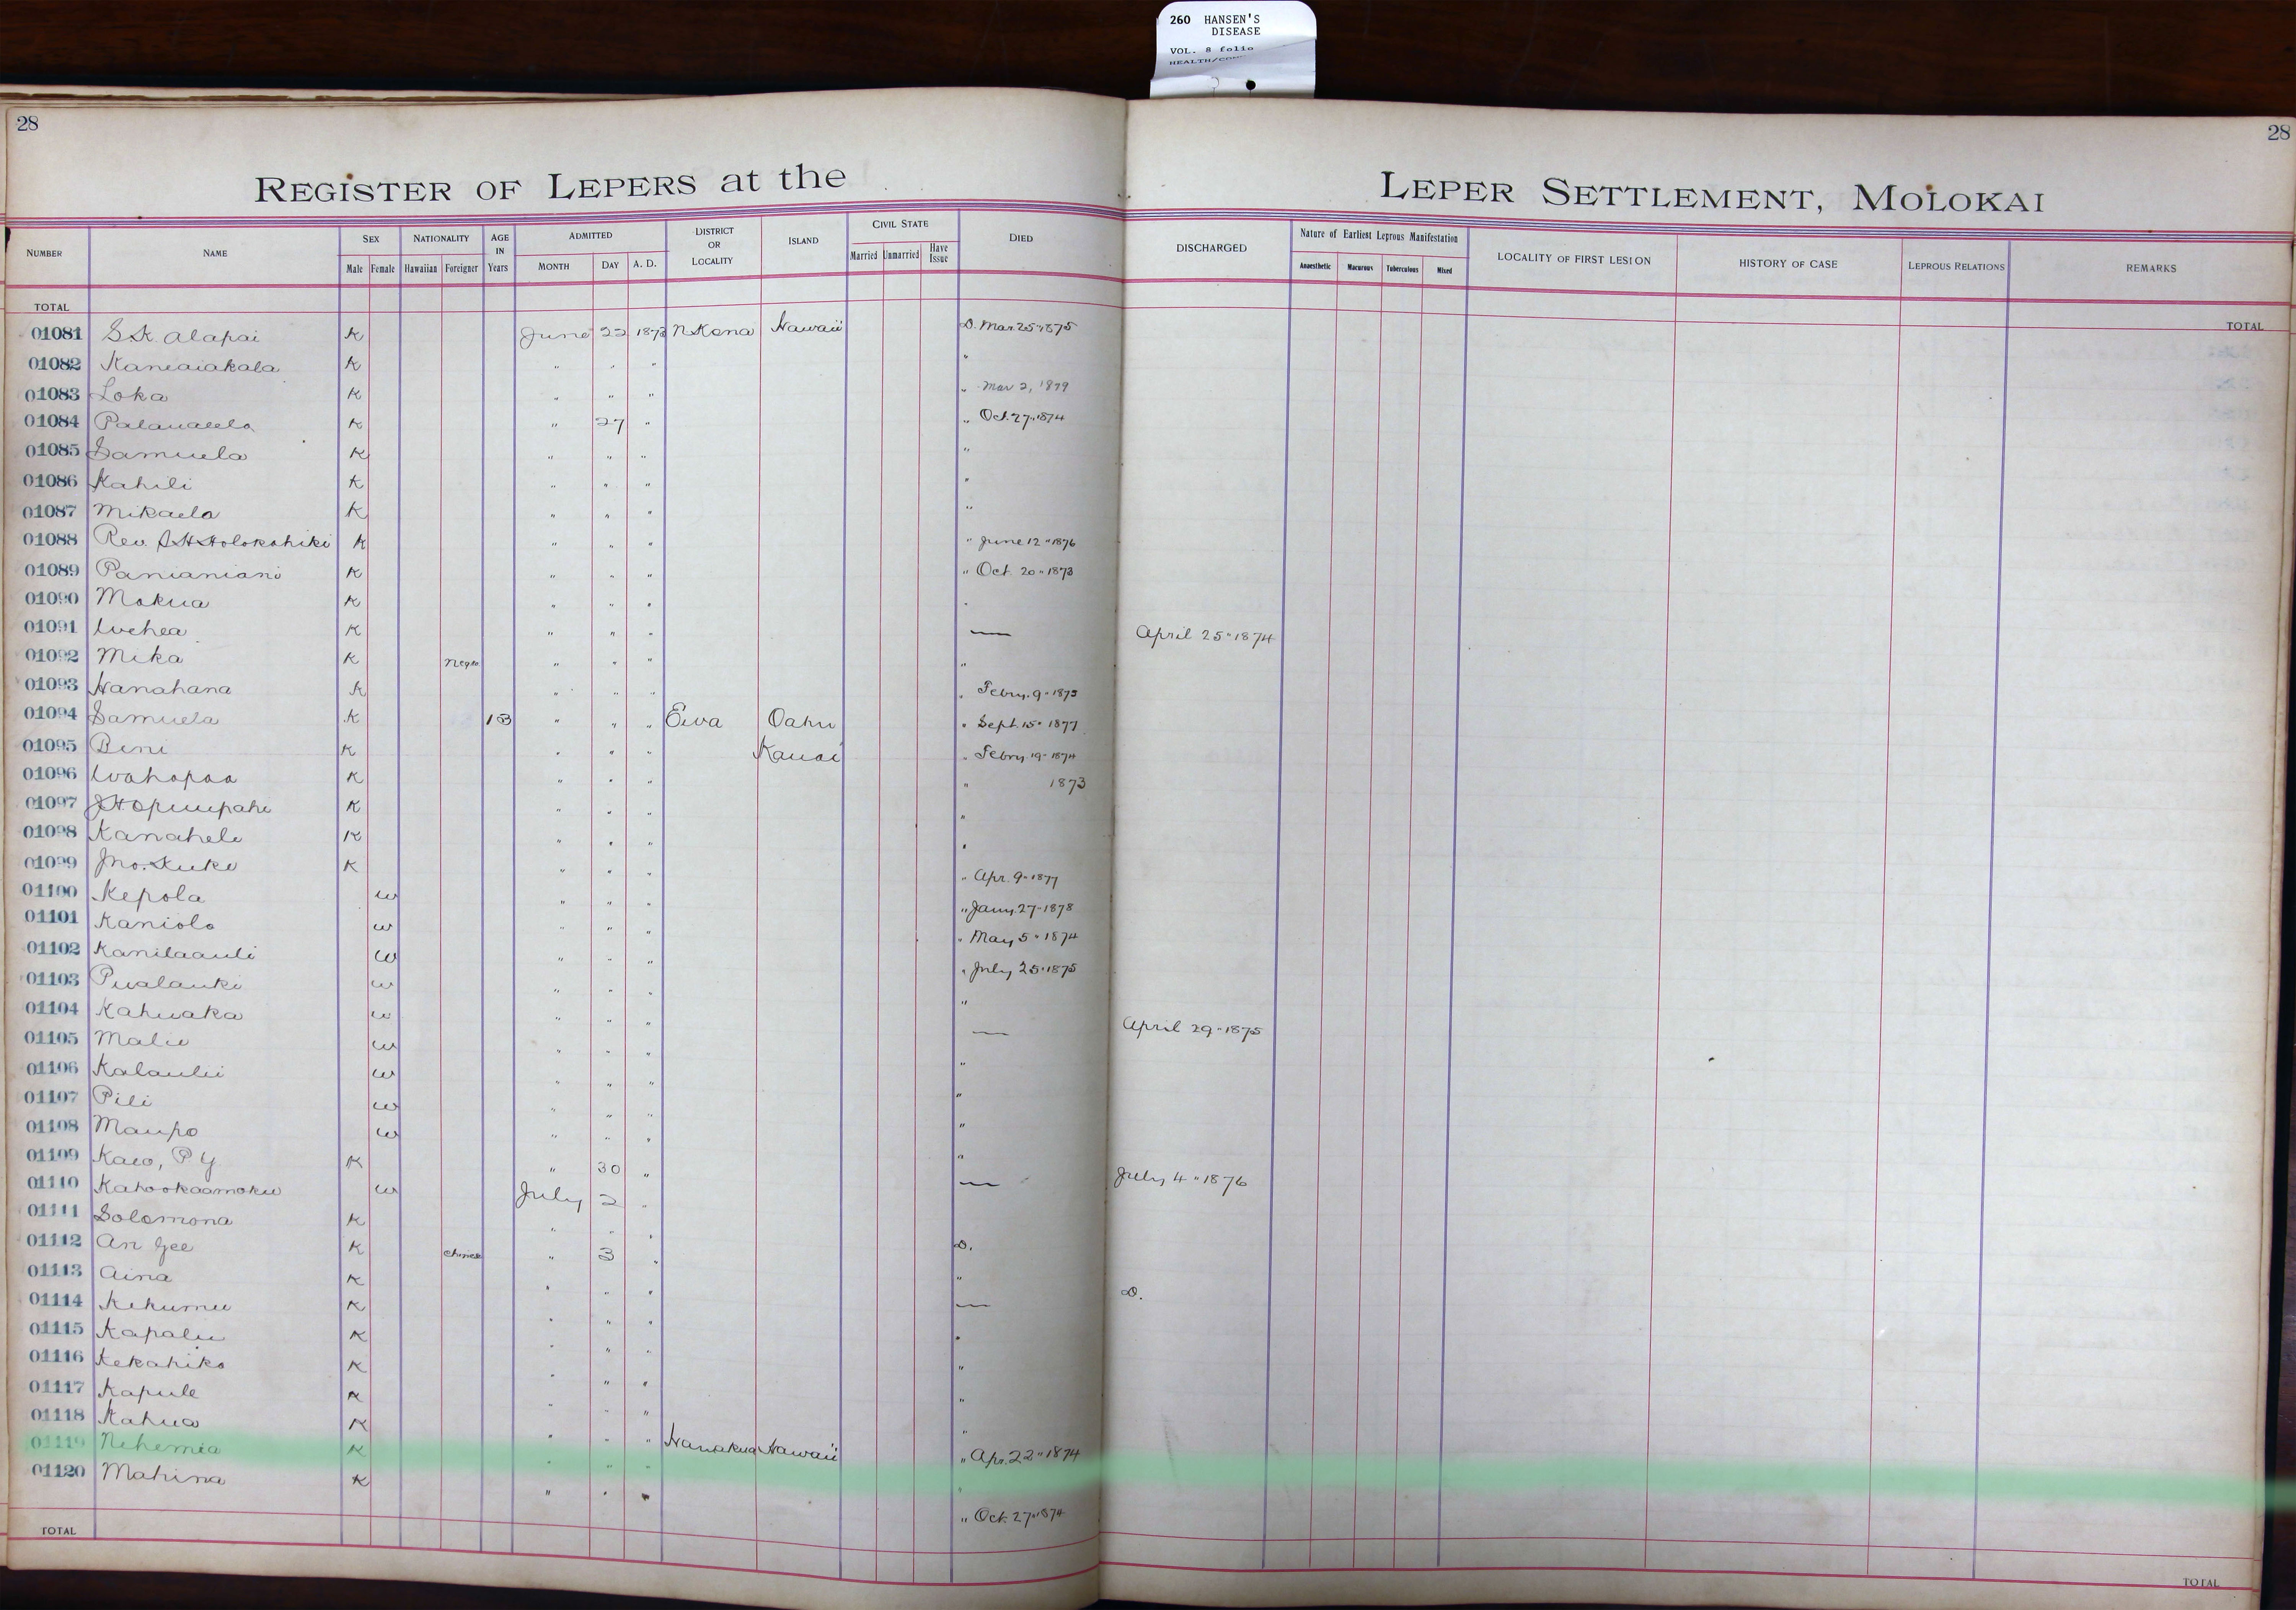 260 HANSEN'S
DISEASE
VOL. 8 folio
28
28
REGISTER OF LEPERS at the LEPER SETTLEMENT, MOLOKAI
NUMBER NAME SEX Male Female NATIONALITY Hawaiian Foreigner AGE IN Years ADMITTED MONTH DAY A. D. DISTRICT OR LOCALITY ISLAND CIVIL STATE Married Unmarried Have Issue DIED DISCHARGED Nature of Earliest Leprous Manifestation Anaesthetic Macurous Tuberculous Mixed LOCALITY OF FIRST LESION HISTORY OF CASE LEPROUS RELATIONS REMARKS
TOTAL TOTAL
01081 S.K. Alapai K June 22 1873 N Kona Hawaii D. Mar. 25 " 1875
01082 Kaneaiakala K " " " "
01083 Loka K " " " " Mar 2, 1879
01084 K " 27 " " Oct. 27 " 1874
01085 Samuela K " " " "
01086 Kahili K " " " "
01087 Mikaela K " " " "
01088 Rev. S H Holokahiki K " " " " June 12 " 1876
01089 Panianiani K " " " " Oct. 20 " 1873
01090 Mokua K " " " "
01091 Wehea K " " " — April 25 " 1874
01092 Mika K Negro " " " "
01093 Hanahana K " " " " Febry. 9 "
01094 Samuela K 13 " " " Ewa Oahu " Sept. 15 " 1877
01095 Beni K " " " Kauai " Febry 19 " 1874
01096 Wahapaa K " " " " 1873
01097 J H Opuupahi K " " " "
01098 Kanahele K " " " "
01099 Jno. Kuke K " " " " Apr. 9 " 1877
01100 Kepola w " " " " Jany. 27 " 1878
01101 Kaniolo w " " " " May 5 " 1874
01102 Kanilaauli w " " " " July 25 " 1875
01103 Pualauki w " " " "
01104 Kahuaka w " " " — April 29 " 1875
01105 Malie w " " " "
01106 Kalaulii w " " " "
01107 Pili w " " " "
01108 Maupo w " " " "
01109 Kaeo, P Y K " 30 " — July 4 " 1876
01110 Kahookaamoku w July 2 "
01111 Solomona K " " " D.
01112 An Gee K Chinese " 3 " "
01113 Aina K " " " — D.
01114 Kekumu K " " " "
01115 Kapalu K " " " "
01116 Kekahiko K " " " "
01117 Kapule K " " " "
01118 Kahua K " " " " Apr. 22 " 1874
01119 Nehemia K " " " Hamakua Hawaii "
01120 Mahina K " " " " Oct. 27 " 1874
TOTAL TOTAL